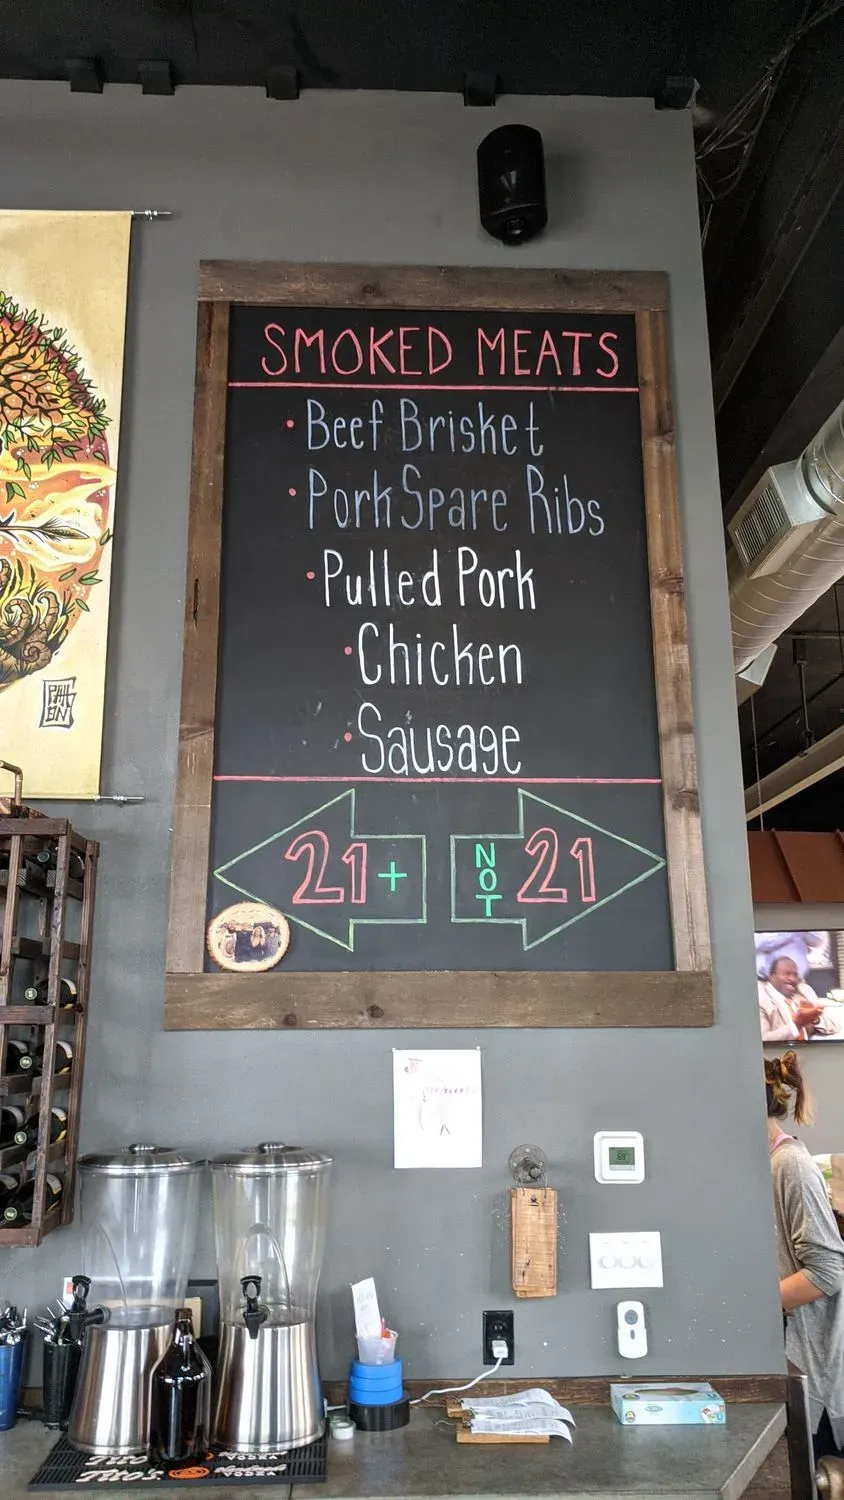 SMOKED MEATS
• Beef Brisket
• Pork Spare Ribs
• Pulled Pork
• Chicken
• Sausage
21+
NOT 21
PAH
BN
Tito's
VODKA
Tito's
VODKA